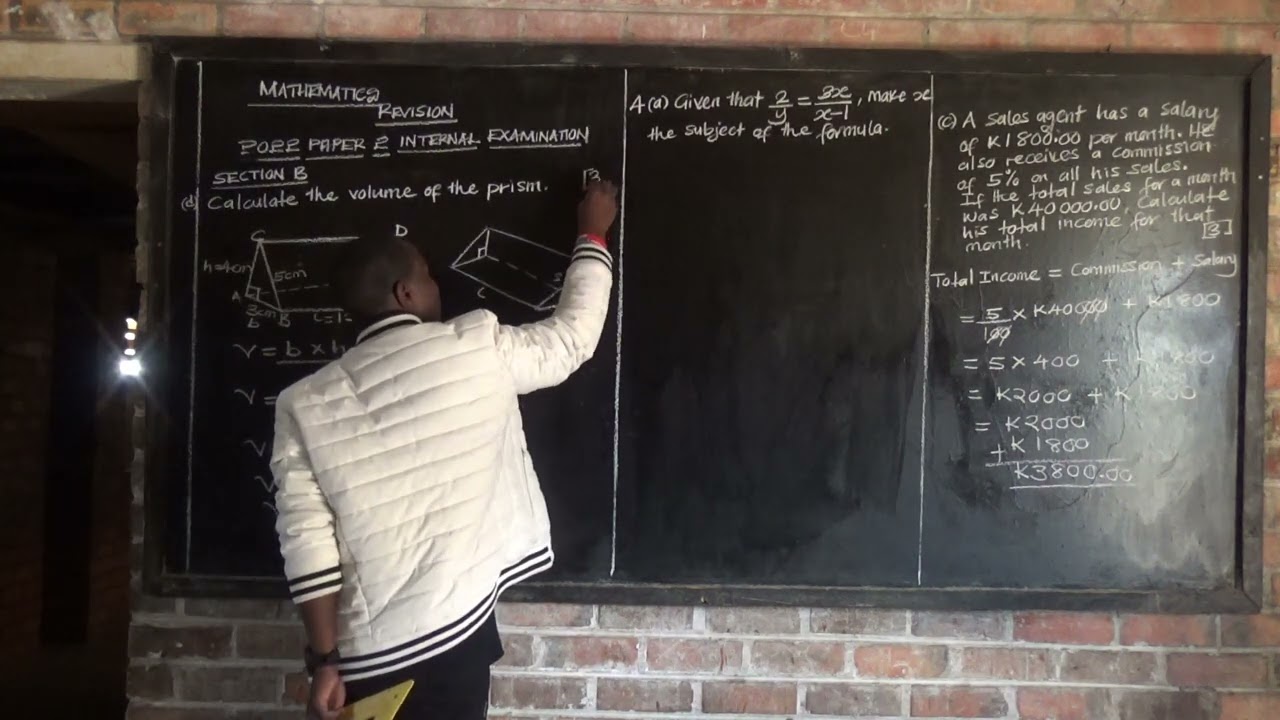 MATHEMATICS
REVISION
2022 PAPER 2 INTERNAL EXAMINATION
SECTION B
(d) Calculate the volume of the prism.
[3
C
D
h=4cm
5cm
A
3cm
b
B
C
V = b x h
V =
V
V
4(a) Given that 2/y = 3x/x-1, make x
the subject of the formula.
(c) A sales agent has a salary
of K1800.00 per month. He
also receives a commission
of 5% on all his sales.
If the total sales for a month
was K40000.00, Calculate
his total income for that
month. [3]
Total Income = Commission + Salary
= 5/100 x K40000 + K1800
= 5 x 400 + K1800
= K2000 + K1800
= K2000
+ K1800
K3800.00